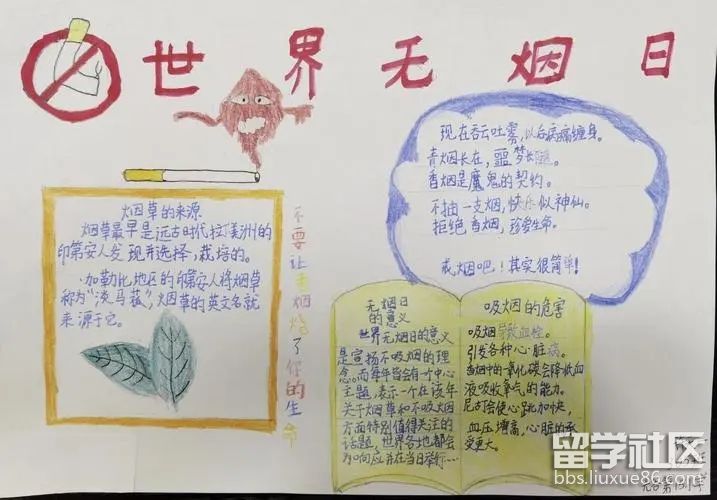 世界无烟日
现在吞云吐雾,以后病痛缠身。
青烟长在,噩梦长随。
香烟是魔鬼的契约。
不抽一支烟,快乐似神仙。
拒绝香烟,珍爱生命。
戒烟吧!其实很简单!
烟草的来源
烟草最早是远古时代拉丁美洲的
印第安人发现并选择,栽培的。
加勒比地区的印第安人将烟草
称为“淡马菰”,烟草的英文名就
来源于它。
不要让香烟烧了你的生命
无烟日
的意义
世界无烟日的意义
是宣扬不吸烟的理
念。而每年皆会有一中心
主题,表示一个在该年
关于烟草和不吸烟
方面特别值得关注的
话题,世界各地都会
为响应并在当日举行……
吸烟的危害
吸烟导致血栓。
引发各种心脏病。
香烟中的一氧化碳会降低血
液吸收氧气的能力。
尼古丁会使心跳加快,
血压增高,心脏的承
受更大。
留学社区
bbs.liuxue86.com